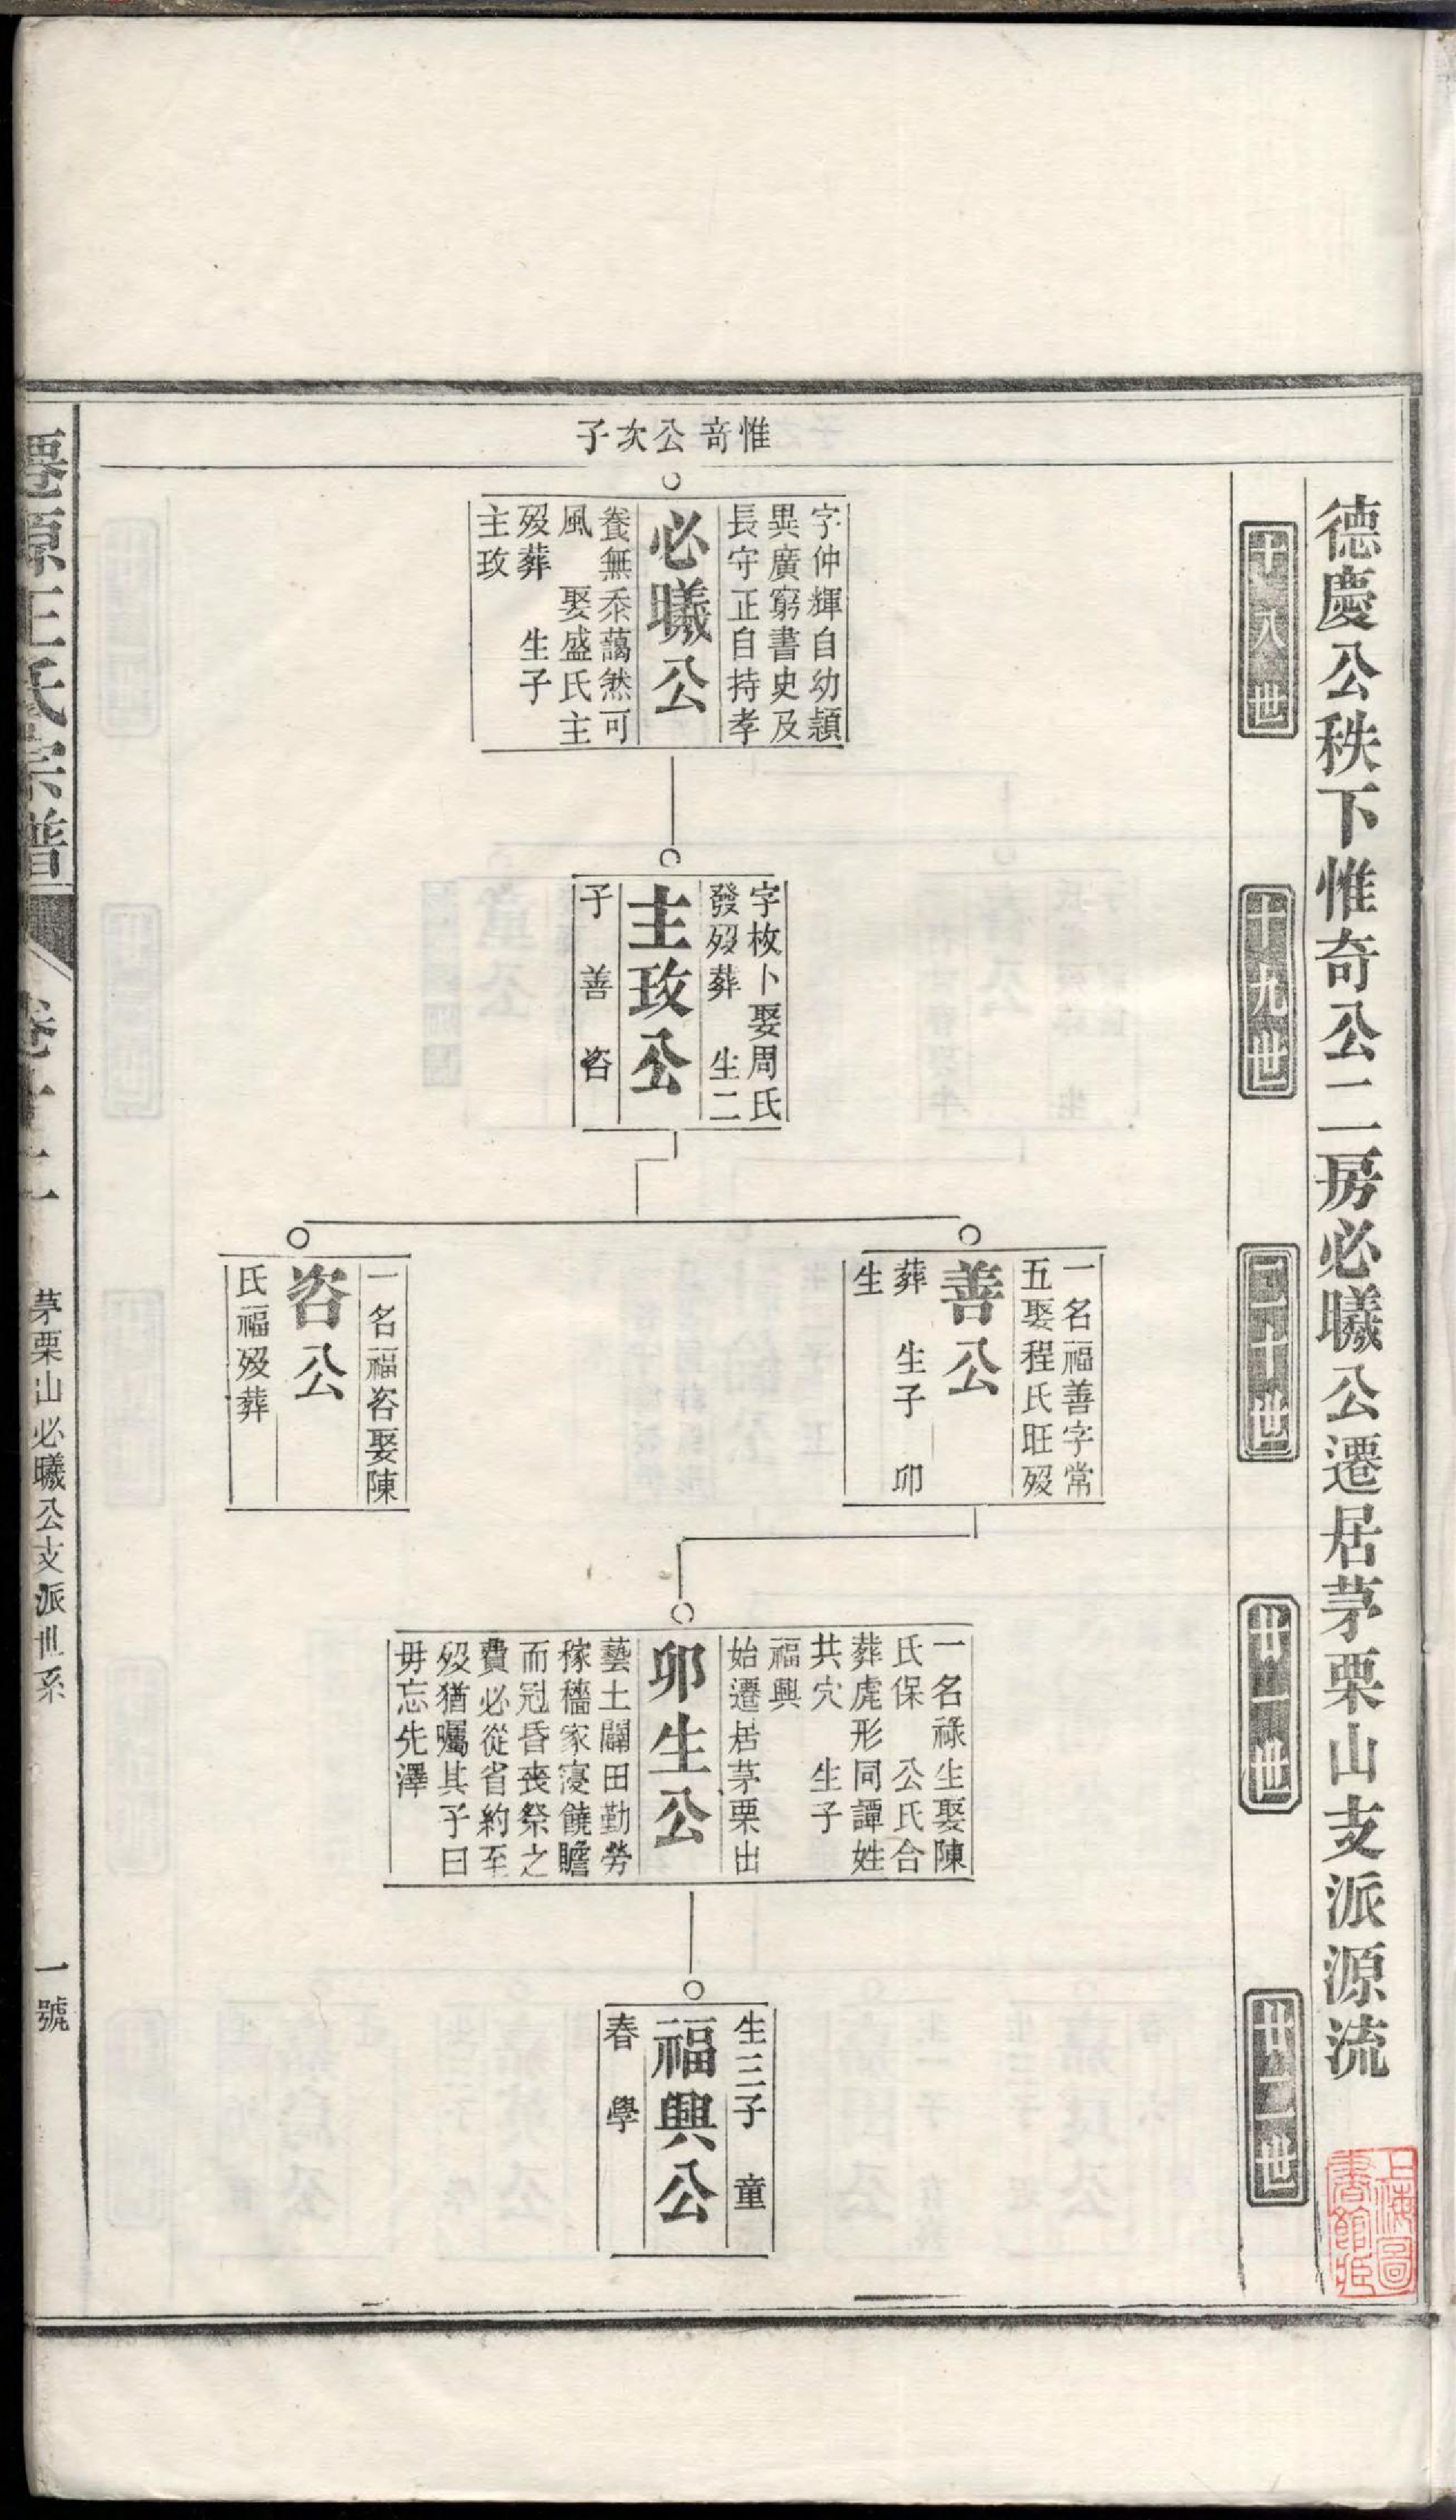 德慶公秩下惟奇公二房必曦公遷居茅栗山支派源流
上海圖
書館藏
十八世
十九世
二十世
廿一世
廿二世
惟奇公次子
字仲輝自幼穎
異廣窮書史及
長守正自持孝
必曦公
養無忝藹然可
風　娶盛氏主
歿葬　生子
主玫
字枚卜娶周氏
發歿葬　生二
主玫公
子　善　咨
一名福善字常
五娶程氏旺歿
善公
葬　生子　卯
生
一名福咨娶陳
咨公
氏福歿葬
一名祿生娶陳
氏保　公氏合
葬虎形同譚姓
共穴　生子
福興
始遷居茅栗出
卯生公
藝土闢田勤勞
稼穡家寖饒贍
而冠昏喪祭之
費必從省約至
歿猶囑其子曰
毋忘先澤
生三子　童
福興公
春　學
遷源王氏宗譜
卷十二
茅栗山必曦公支派世系
一號